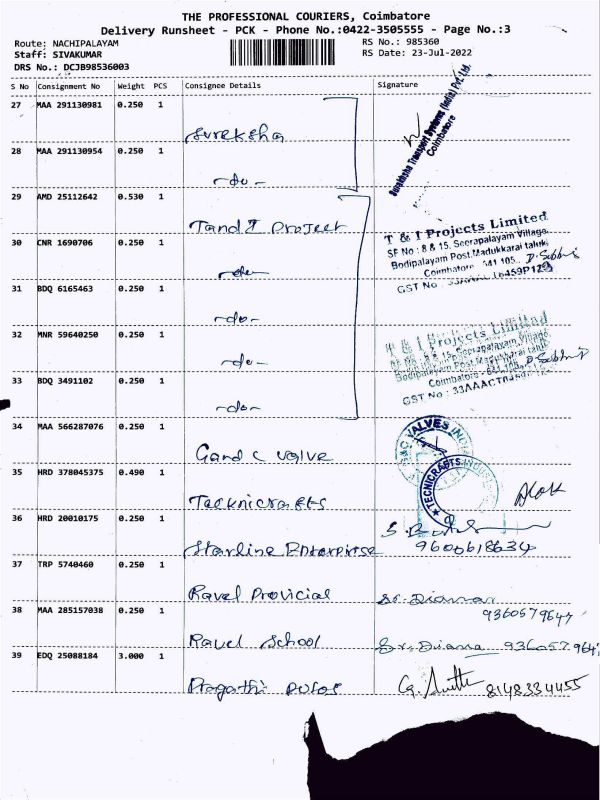 THE PROFESSIONAL COURIERS, Coimbatore
Delivery Runsheet - PCK - Phone No.:0422-3505555 - Page No.:3
Route: NACHIPALAYAM RS No.: 985360
Staff: SIVAKUMAR RS Date: 23-Jul-2022
DRS No.: DCJB98536003
S No Consignment No Weight PCS Consignee Details Signature
27 MAA 291130981 0.250 1
Sureksha
Coimbatore
28 MAA 291130954 0.250 1
-do-
29 AMD 25112642 0.530 1
Tand I Project
T & I Projects Limited
SF No : 8 & 15, Seerapalayam Village,
Bodipalayam Post, Madukkarai taluk,
Coimbatore - 641 105.
GST No :
30 CNR 1690706 0.250 1
-do-
31 BDQ 6165463 0.250 1
-do-
T & I Projects Limited
Seerapalayam Village,
Bodipalayam Post, Madukkarai taluk
Coimbatore - 641 105
GST No :
32 MNR 59640250 0.250 1
-do-
33 BDQ 3491102 0.250 1
-do-
34 MAA 566287076 0.250 1
Gand C valve
VALVES
35 HRD 378045375 0.490 1
Tecknicrafts
TECNICRAFTS
36 HRD 20010175 0.250 1
Starline Enterprise
9600618634
37 TRP 5740460 0.250 1
Ravel Provicial
Sr. Diana
9360579647
38 MAA 285157038 0.250 1
Ravel School
Sr. Diana 936057964
39 EDQ 25088184 3.000 1
Pragathi
8148334455